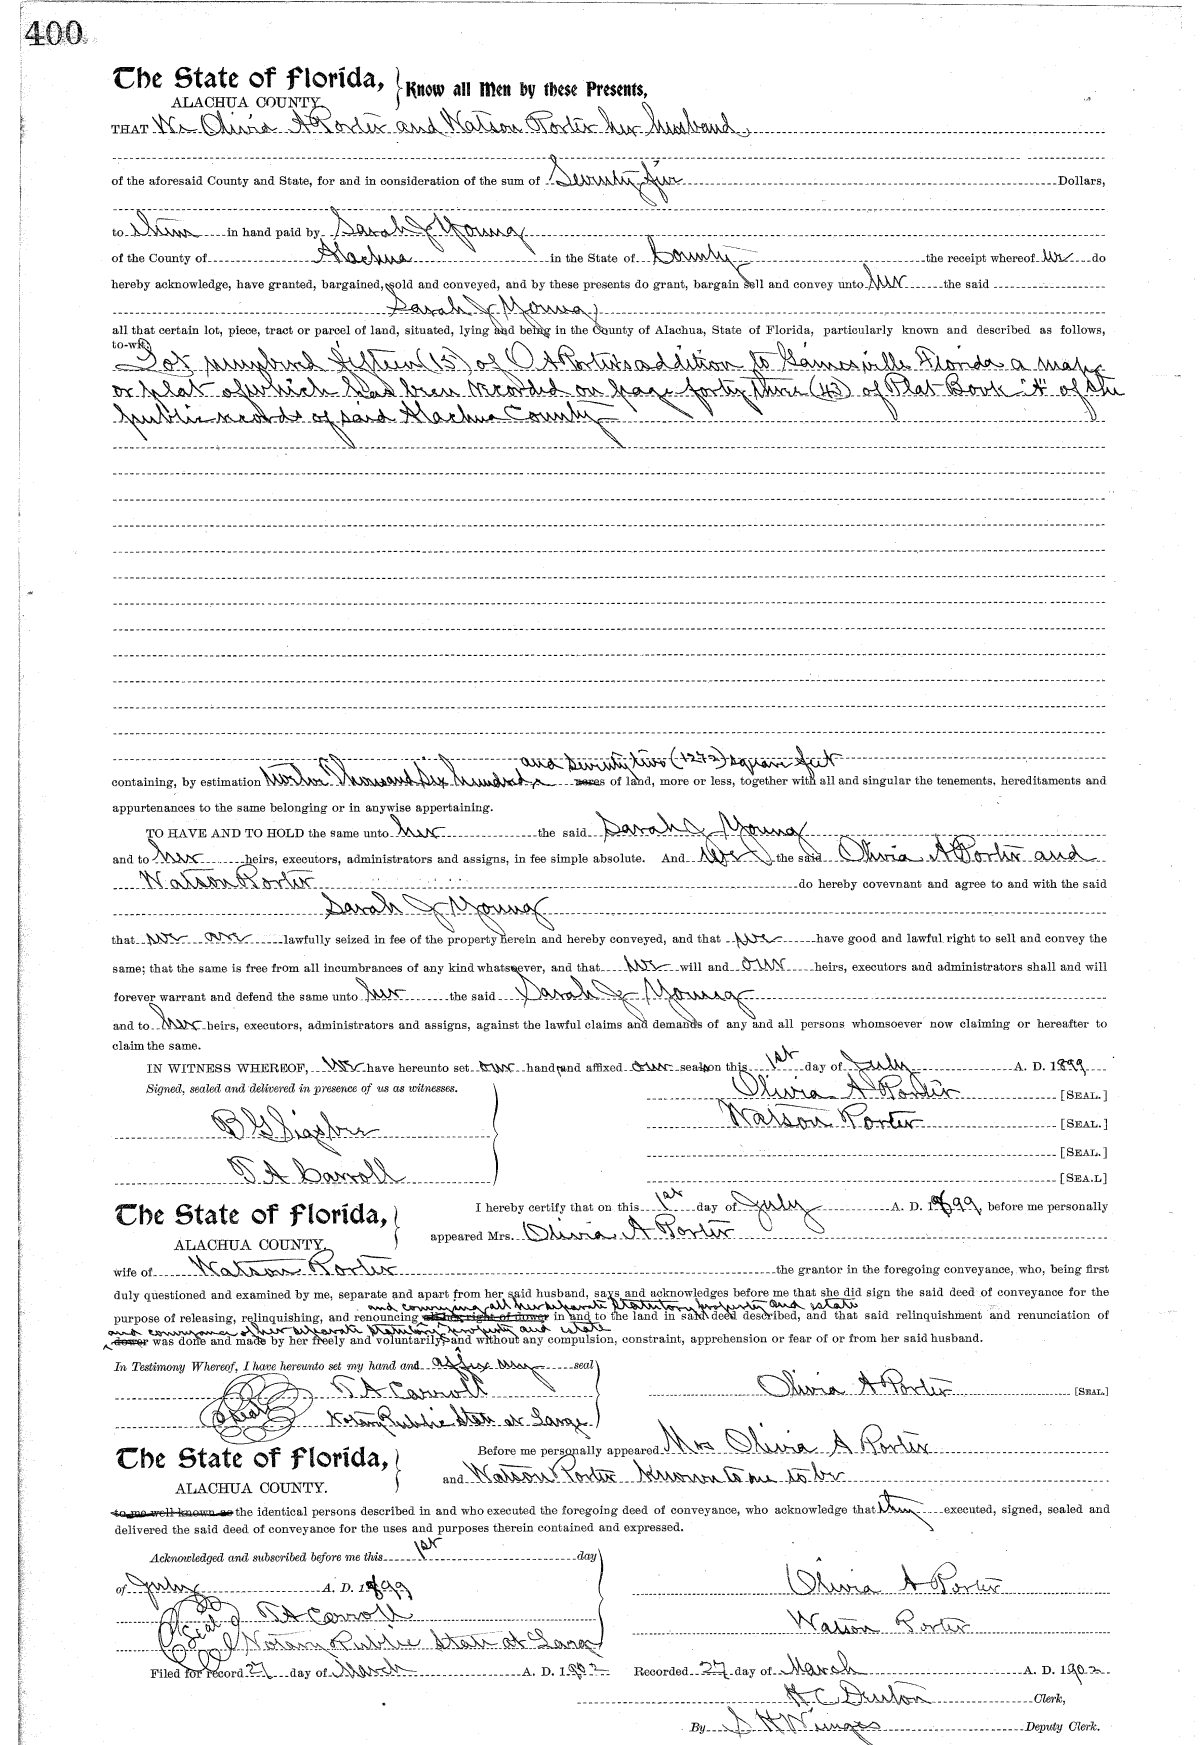 400
The State of Florida, Know all Men by these Presents,
ALACHUA COUNTY.
THAT We Olivia A Porter and Watson Porter her husband
of the aforesaid County and State, for and in consideration of the sum of Seventy five Dollars,
to them in hand paid by Sarah J Young
of the County of Alachua in the State of County the receipt whereof we do
hereby acknowledge, have granted, bargained, sold and conveyed, and by these presents do grant, bargain sell and convey unto her the said
Sarah J Young
all that certain lot, piece, tract or parcel of land, situated, lying and being in the County of Alachua, State of Florida, particularly known and described as follows,
to-wit:
Lot numbered fifteen (15) of O A Porters addition to Gainesville Florida a map
or plat of which has been recorded on page forty three (43) of Plat Book "A" of the
public records of said Alachua County
and seventy two (1272) square feet
containing, by estimation twelve Thousand Six hundred acres of land, more or less, together with all and singular the tenements, hereditaments and
appurtenances to the same belonging or in anywise appertaining.
TO HAVE AND TO HOLD the same unto her the said Sarah J Young
and to her heirs, executors, administrators and assigns, in fee simple absolute. And we the said Olivia A Porter and
Watson Porter do hereby covevnant and agree to and with the said
Sarah J Young
that we are lawfully seized in fee of the property herein and hereby conveyed, and that we have good and lawful right to sell and convey the
same; that the same is free from all incumbrances of any kind whatsoever, and that we will and our heirs, executors and administrators shall and will
forever warrant and defend the same unto her the said Sarah J Young
and to her heirs, executors, administrators and assigns, against the lawful claims and demands of any and all persons whomsoever now claiming or hereafter to
claim the same.
IN WITNESS WHEREOF, We have hereunto set our hand and affixed our seals on this 1st day of July A. D. 1899
Signed, sealed and delivered in presence of us as witnesses. Olivia A Porter [SEAL.]
B G Watson Porter [SEAL.]
[SEAL.]
T A Carroll [SEA.L]
The State of Florida, I hereby certify that on this 1st day of July A. D. 1899, before me personally
ALACHUA COUNTY. appeared Mrs. Olivia A Porter
wife of Watson Porter the grantor in the foregoing conveyance, who, being first
duly questioned and examined by me, separate and apart from her said husband, says and acknowledges before me that she did sign the said deed of conveyance for the
and conveying all her separate statutory property and estate
purpose of releasing, relinquishing, and renouncing all her right of dower in and to the land in said deed described, and that said relinquishment and renunciation of
and conveyance of her separate statutory property and estate
dower was done and made by her freely and voluntarily and without any compulsion, constraint, apprehension or fear of or from her said husband.
In Testimony Whereof, I have hereunto set my hand and affix my seal
T A Carroll Olivia A Porter [SEAL.]
(Seal) Notary Public State at Large
The State of Florida, Before me personally appeared Mrs Olivia A Porter
ALACHUA COUNTY. and Watson Porter known to me to be
to me well known as the identical persons described in and who executed the foregoing deed of conveyance, who acknowledge that they executed, signed, sealed and
delivered the said deed of conveyance for the uses and purposes therein contained and expressed.
Acknowledged and subscribed before me this 1st day
of July A. D. 1899 Olivia A Porter
T A Carroll Watson Porter
Seal Notary Public State at Large
Filed for record 27 day of March A. D. 1902 Recorded 27 day of March A. D. 1902
H C Denton Clerk,
By S H Wienges Deputy Clerk.